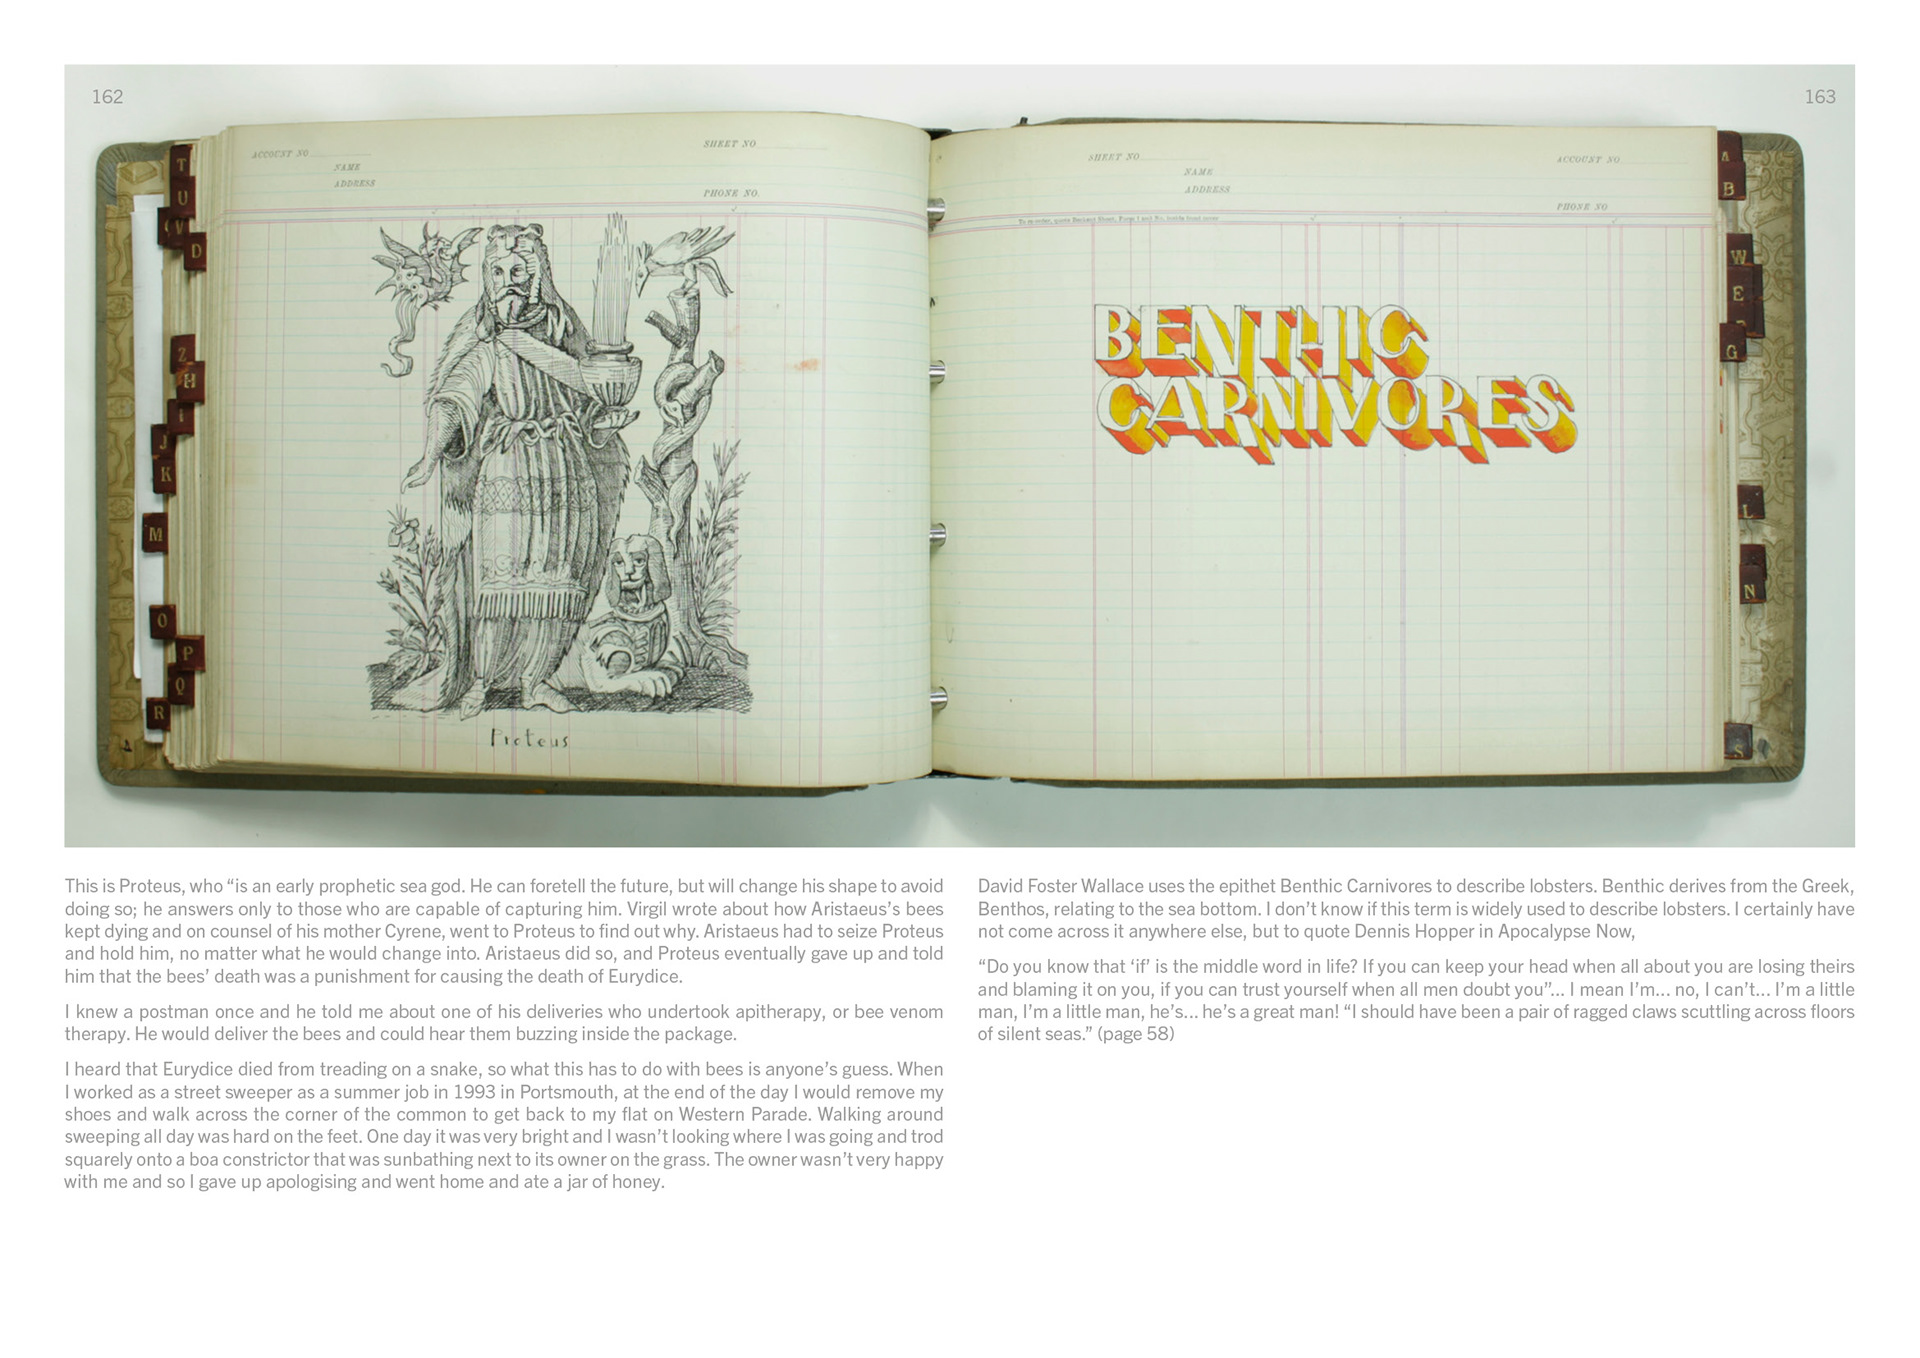 162
163
ACCOUNT NO
SHEET NO
NAME
ADDRESS
PHONE NO.
T
U
V
D
Z
H
I
J
K
M
O
P
Q
R
Proteus
SHEET NO
ACCOUNT NO
NAME
ADDRESS
PHONE NO
BENTHIC
CARNIVORES
A
B
W
E
G
L
N
S
This is Proteus, who “is an early prophetic sea god. He can foretell the future, but will change his shape to avoid
doing so; he answers only to those who are capable of capturing him. Virgil wrote about how Aristaeus’s bees
kept dying and on counsel of his mother Cyrene, went to Proteus to find out why. Aristaeus had to seize Proteus
and hold him, no matter what he would change into. Aristaeus did so, and Proteus eventually gave up and told
him that the bees’ death was a punishment for causing the death of Eurydice.
I knew a postman once and he told me about one of his deliveries who undertook apitherapy, or bee venom
therapy. He would deliver the bees and could hear them buzzing inside the package.
I heard that Eurydice died from treading on a snake, so what this has to do with bees is anyone’s guess. When
I worked as a street sweeper as a summer job in 1993 in Portsmouth, at the end of the day I would remove my
shoes and walk across the corner of the common to get back to my flat on Western Parade. Walking around
sweeping all day was hard on the feet. One day it was very bright and I wasn’t looking where I was going and trod
squarely onto a boa constrictor that was sunbathing next to its owner on the grass. The owner wasn’t very happy
with me and so I gave up apologising and went home and ate a jar of honey.
David Foster Wallace uses the epithet Benthic Carnivores to describe lobsters. Benthic derives from the Greek,
Benthos, relating to the sea bottom. I don’t know if this term is widely used to describe lobsters. I certainly have
not come across it anywhere else, but to quote Dennis Hopper in Apocalypse Now,
“Do you know that ‘if’ is the middle word in life? If you can keep your head when all about you are losing theirs
and blaming it on you, if you can trust yourself when all men doubt you”... I mean I’m... no, I can’t... I’m a little
man, I’m a little man, he’s... he’s a great man! “I should have been a pair of ragged claws scuttling across floors
of silent seas.” (page 58)